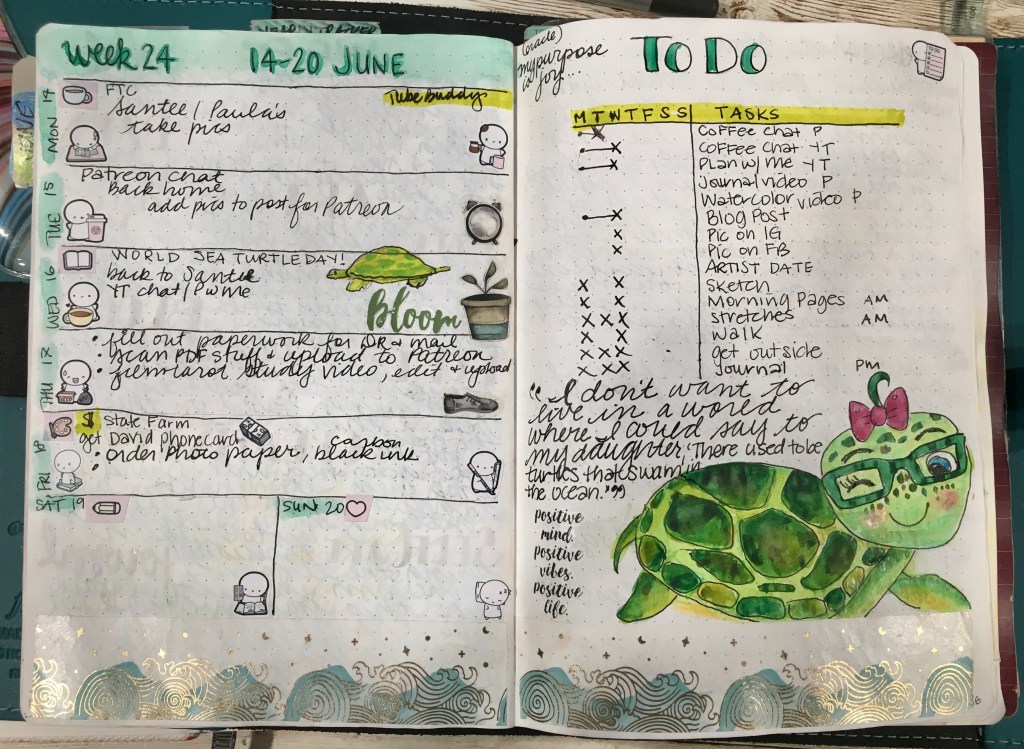 Week 24
14-20 JUNE
MON 14
FTC
Tube Buddy
Santee / Paula's
take pics
TUE 15
Patreon chat
Back home
add pics to post for Patreon
WED 16
WORLD SEA TURTLE DAY!
back to Santee
YT chat / PWme
Bloom
THU 17
• fill out paperwork for DR & mail
• scan PDF stuff & upload to Patreon
• film carol study video, edit & upload
FRI 18
$ State Farm
get David phonecard
carbon
• order Photo paper, black ink
SAT 19
SUN 20
(oracle)
my purpose
is
joy...
TO DO
M T W T F S S TASKS
Coffee Chat P
Coffee Chat YT
Plan w/ me YT
Journal video P
Watercolor video P
Blog Post
Pic on IG
Pic on FB
ARTIST DATE
Sketch
Morning Pages AM
stretches AM
Walk
get outside
Journal PM
"I don't want to
live in a world
where I could say to
my daughter, 'There used to be
turtles that swam in
the ocean.'"
Positive
mind.
Positive
vibes.
Positive
life.
36